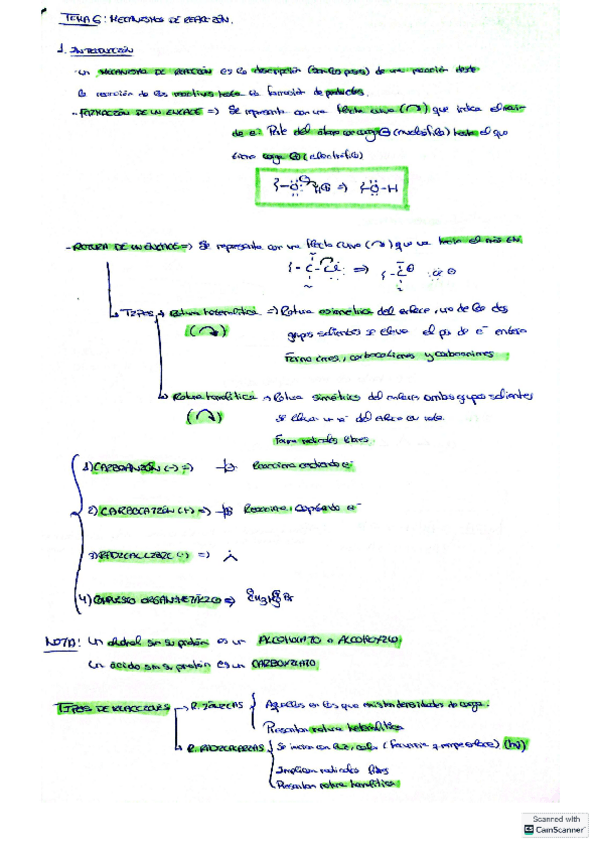 TEMA 6: MECANISMOS DE REACCIÓN.
1. INTRODUCCIÓN
- Un MECANISMO DE REACCIÓN es la descripción de una reacción desde
la reacción de los reactivos hasta la formación de productos.
- FORMACIÓN DE UN ENLACE => Se representa con una flecha curva (↷) que indica el
de e⁻. Parte del átomo con carga ⊖ (nucleófilo) hasta el que
tiene carga ⊕ (electrófilo)
- ROTURA DE UN ENLACE => Se representa con una flecha curva (↷) que va hacia el más EN.
TIPOS → Rotura heterolítica => Rotura asimétrica del enlace, uno de los dos
(↷) grupos salientes se lleva el par de e⁻ enlace
Forma iones, carbocationes y carboaniones
→ Rotura homolítica → Rotura simétrica del enlace ambos grupos salientes
(↷) se llevan un e⁻ del enlace cada
Forma radicales libres.
1) CARBOANIÓN (-) => Reacciona cediendo e⁻
2) CARBOCATIÓN (+) => Reacciona, captando e⁻
3) RADICAL LIBRE (·) =>
4) COMPUESTO ORGANOMETÁLICO => CH₃MgBr
NOTA: Un alcohol sin su protón es un ALCOHOLATO o ALCÓXIDO
Un ácido sin su protón es un CARBOXILATO
TIPOS DE REACCIONES → R. IÓNICAS { Aquellas en las que existen densidades de carga.
Presentan rotura heterolítica
→ R. RADICALARIAS { Se inician con luz, calor (hν)
Implican radicales libres
Presentan rotura homolítica
Scanned with
CamScanner